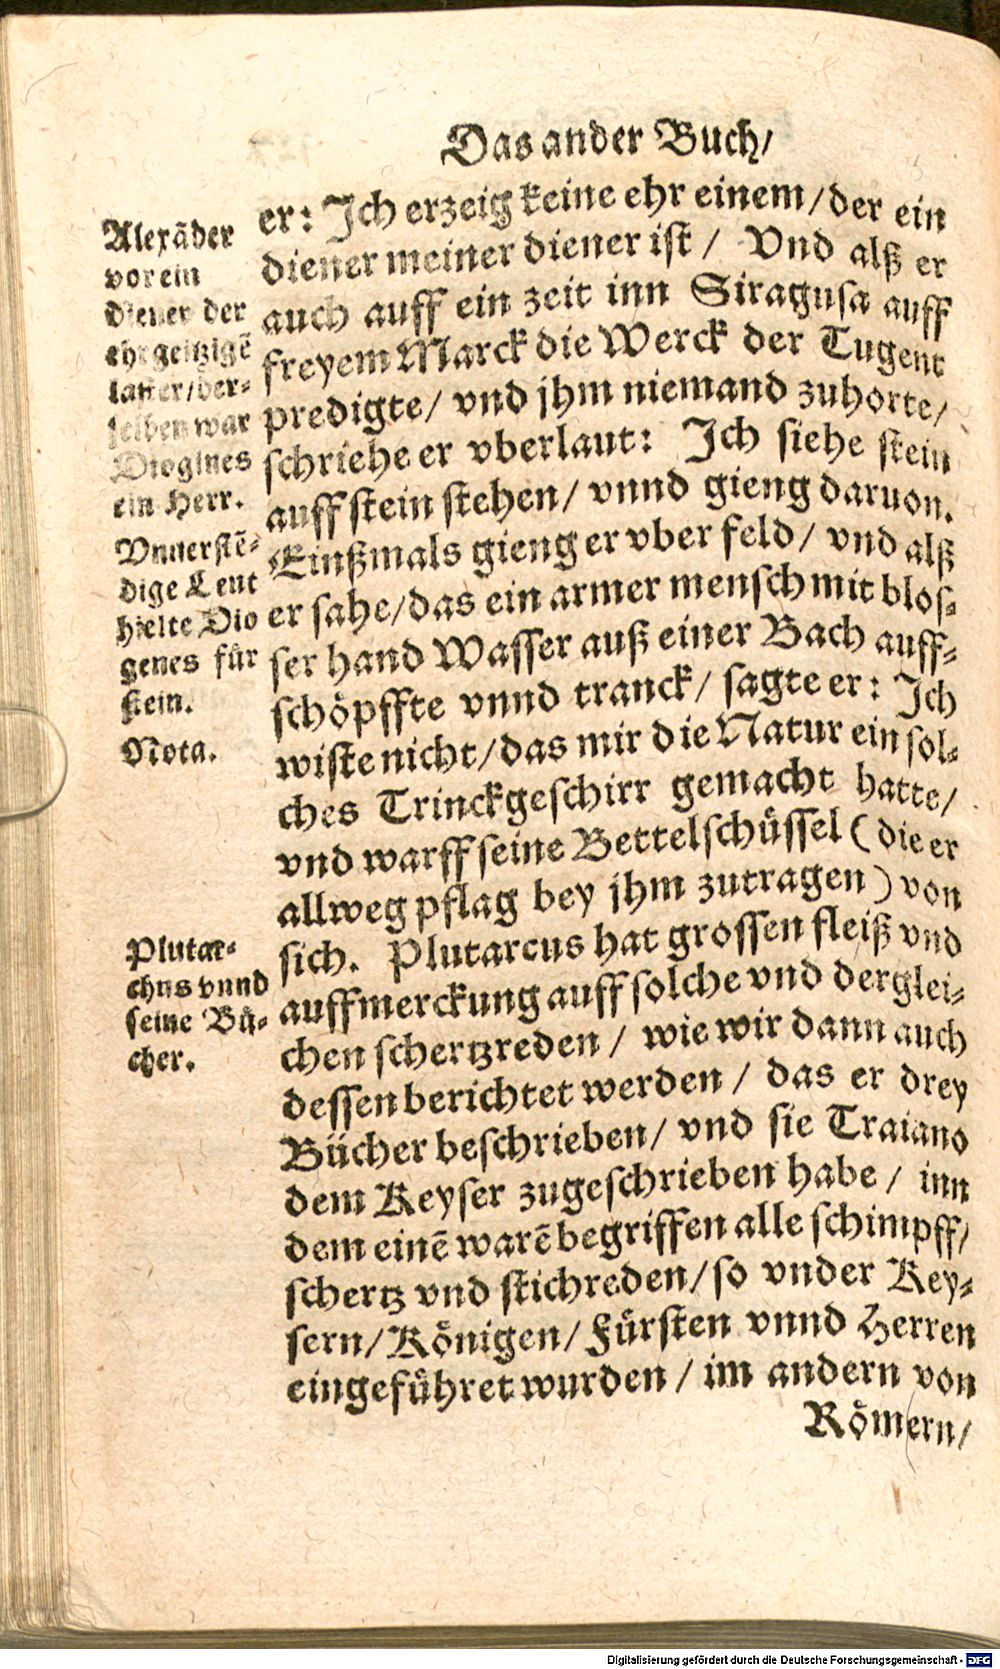 Das ander Buch/
er: Ich erzeig keine ehr einem/der ein
diener meiner diener ist / Vnd alß er
auch auff ein zeit inn Siragusa auff
freyem Marck die Werck der Tugent
predigte/ vnd jhm niemand zuhorte/
schriehe er vberlaut: Ich siehe stein
auff stein stehen/ vnnd gieng daruon.
Einßmals gieng er vber feld/ vnd alß
er sahe/das ein armer mensch mit blos-
ser hand Wasser auß einer Bach auff-
schöpffte vnnd tranck/ sagte er: Ich
wiste nicht/das mir die Natur ein sol-
ches Trinckgeschirr gemacht hatte/
vnd warff seine Bettelschüssel (die er
allweg pflag bey jhm zutragen) von
sich. Plutarcus hat grossen fleiß vnd
auffmerckung auff solche vnd derglei-
chen schertzreden / wie wir dann auch
dessen berichtet werden / das er drey
Bücher beschrieben/ vnd sie Traiano
dem Keyser zugeschrieben habe / inn
dem einē warē begriffen alle schimpff/
schertz vnd stichreden/so vnder Key-
sern/Königen/Fürsten vnnd Herren
eingeführet wurden / im andern von
Römern/
Alexāder
vor ein
diener der
ehrgeitzigē
laster/der-
selben war
Diogines
ein Herr.
Vnuerstē-
dige Leut
hielte Dio
genes für
stein.
Nota.
Plutar-
chus vnnd
seine Bü-
cher.
Digitalisierung gefördert durch die Deutsche Forschungsgemeinschaft - DFG